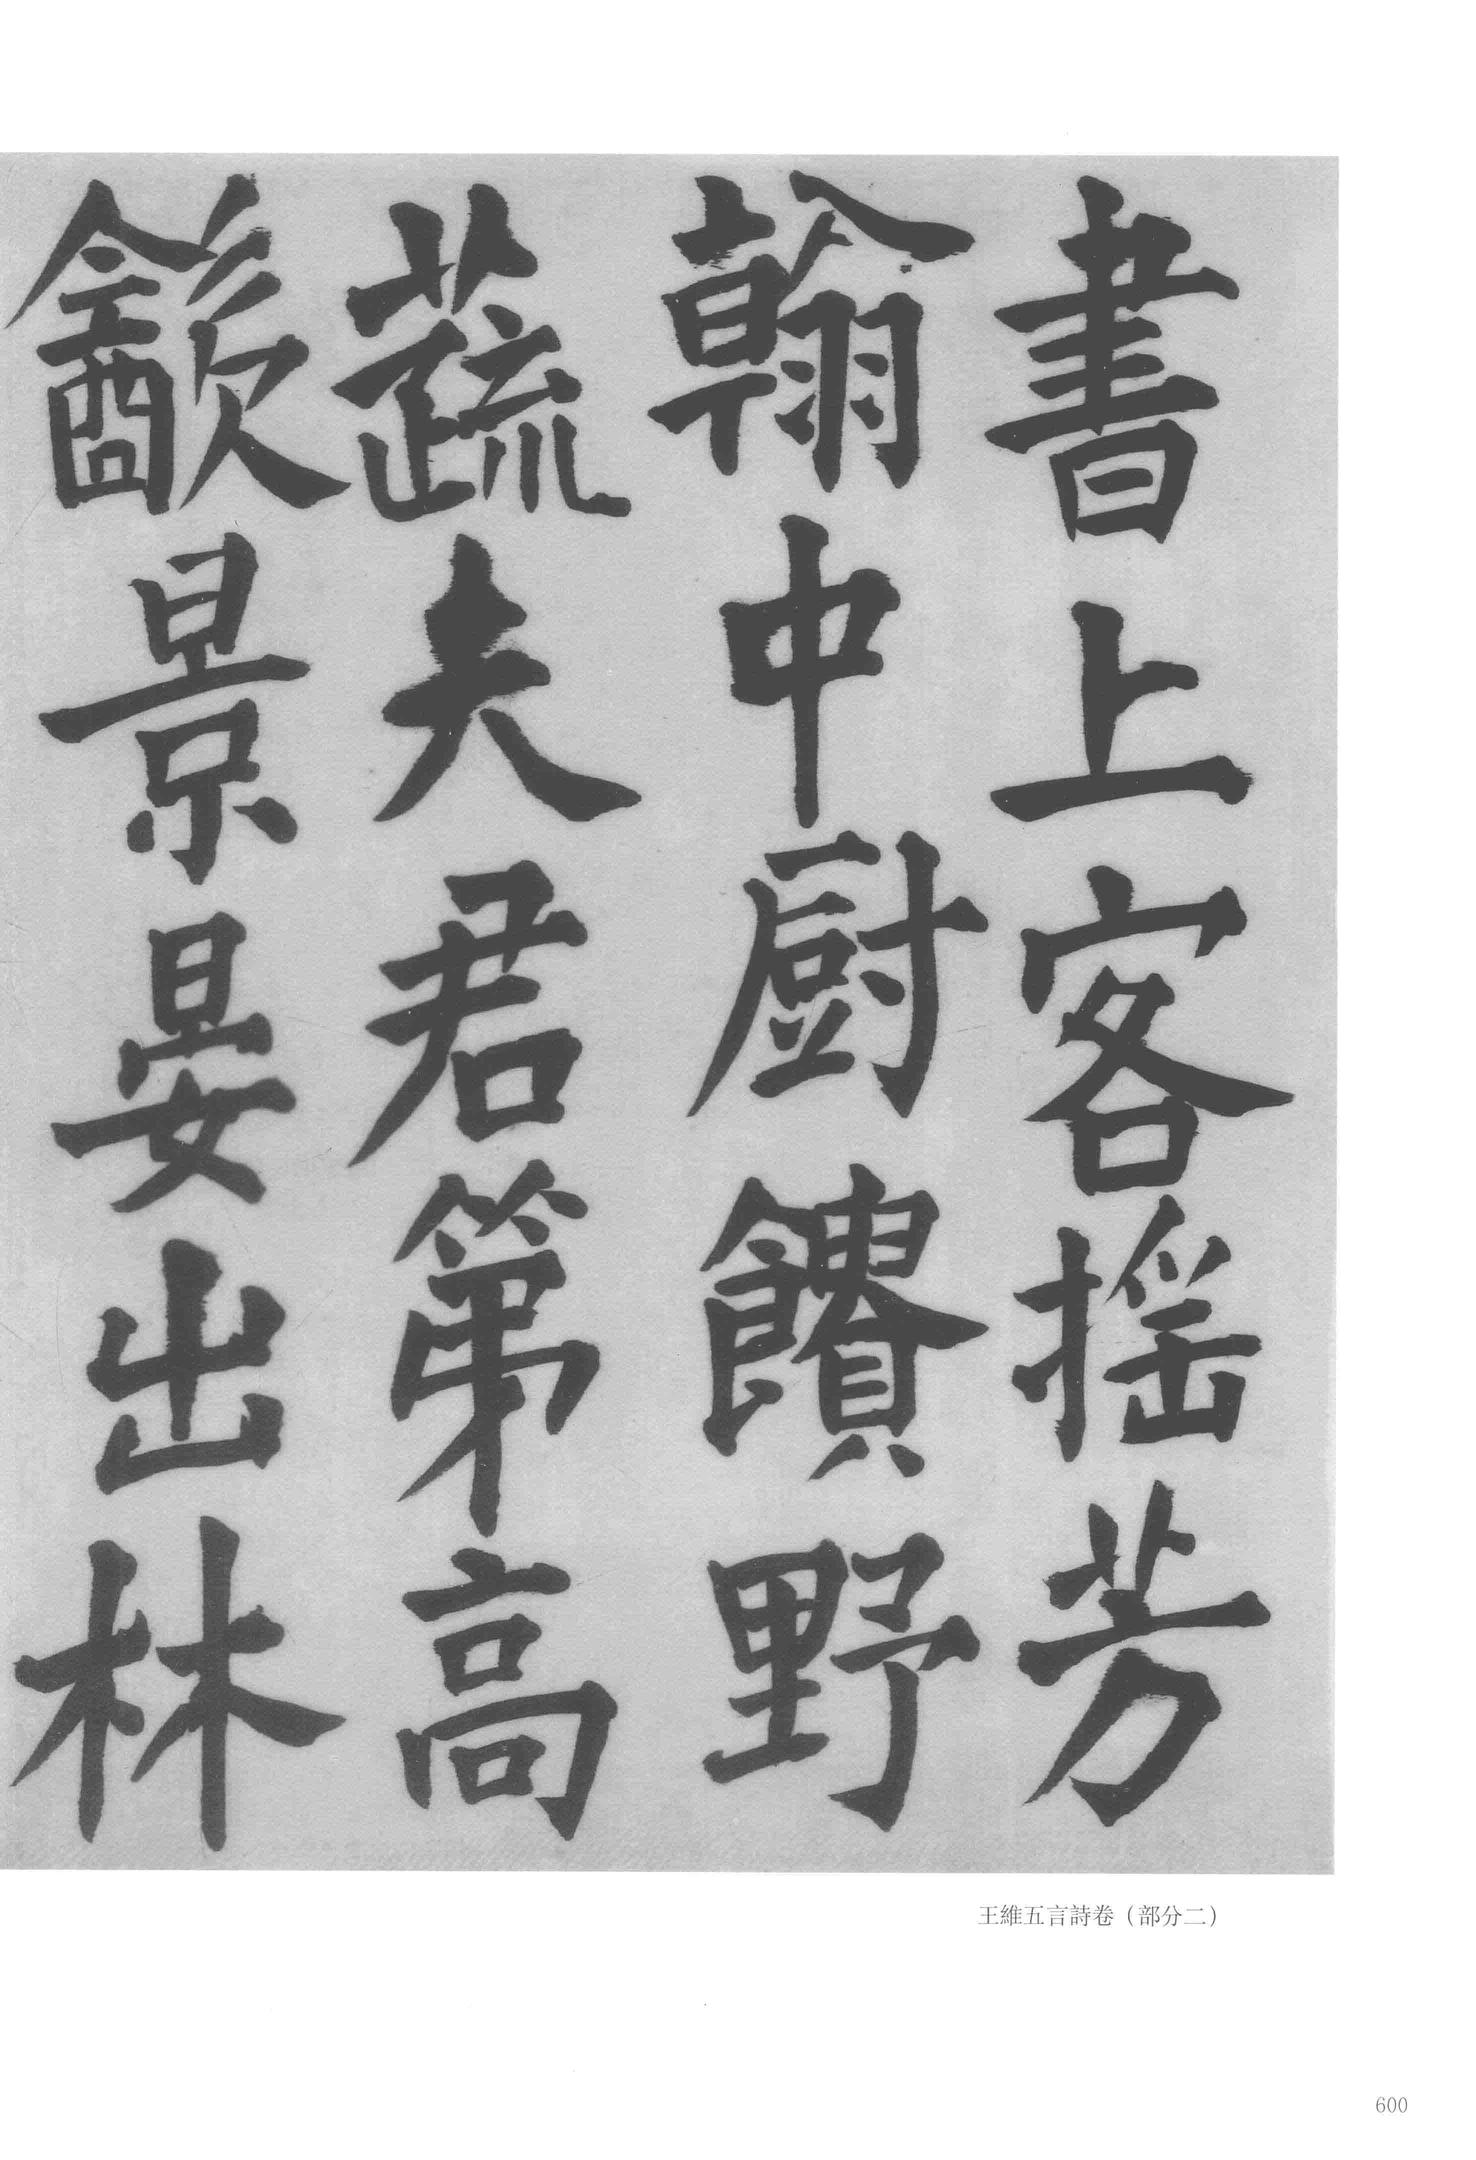 書上客摇芳
翰中厨饋野
蔬夫君第高
歙景晏出林
王維五言詩卷（部分二）
600